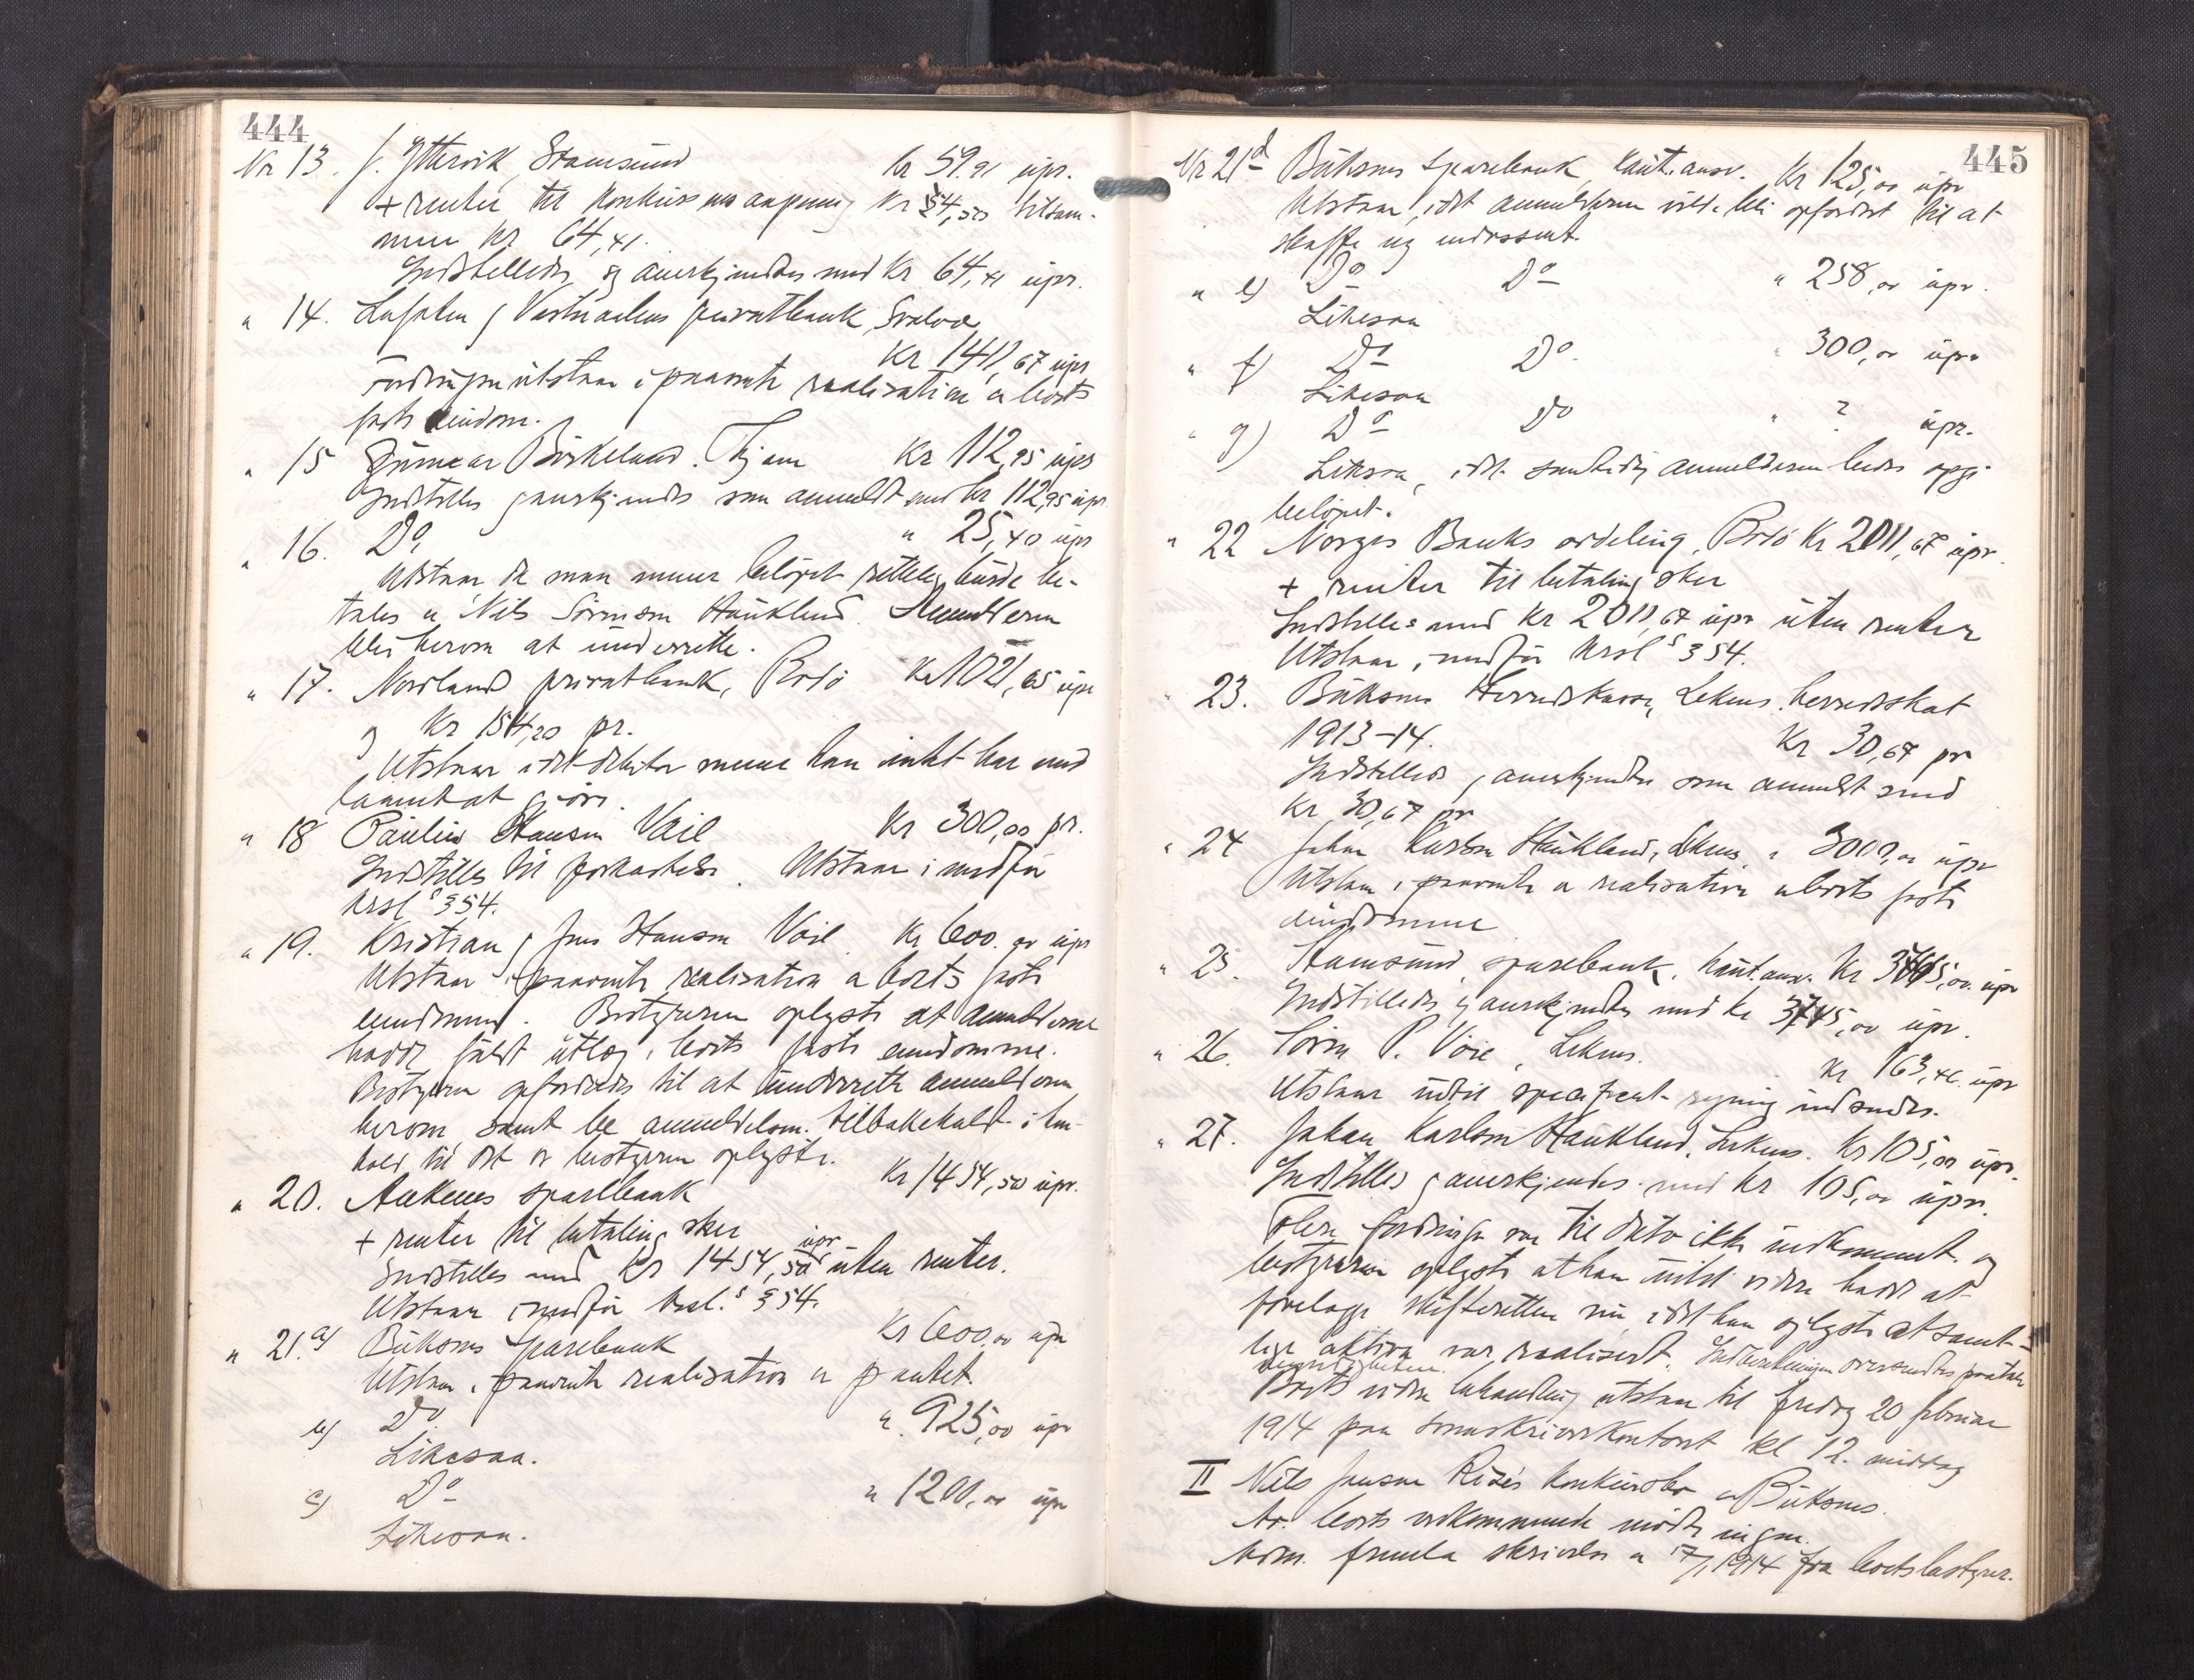 444
Nr 13. J. Yttervik, Stamsund Kr 59,91 upr.
+ renter til konkursens aapning Kr 4,50 tilsam-
men Kr 64,41.
Indstilledes og anerkjendtes med Kr 64,41 upr.
" 14. Lofoten & Vesteraalens privatbank, Svolvær
Kr 1411,67 upr
Fordringen utstaar i paavente realisation av boets
faste eiendom.
" 15 Gunnar Birkeland. Kr 112,95 upr
Indstilles & anerkjendes som anmeldt med kr 112,95 upr
" 16. Do, " 25,40 upr
Utstaar da man mener beløpet rettelig burde be-
tales av Nils Sørensen Haukland. Anmelderen
blir herom at underrette.
" 17. Nordlands privatbank, Bodø Kr 1021,65 upr
og Kr 154,20 pr.
Utstaar idet debitor mener han intet har med
laanet at gjøre.
" 18 Paulin Hansen Vaie Kr 300,00 pr.
Indstilles til forkastelse. Utstaar i medfør
krsl.s § 54.
" 19. Kristian & Jens Hansen Voie Kr 600,00 upr
Utstaar i paavente realisation av boets faste
eiendomme. Bestyreren oplyste at anmelderne
hadde faaet utlæg i boets faste eiendomme.
Bestyreren opfordredes til at underrette anmelderne
herom samt be anmeldelsen tilbakekaldt i hen-
hold til det av bestyreren oplyste.
" 20. Aakenes sparebank Kr 1454,50 upr.
+ renter til betaling sker
Indstilles med Kr 1454,50 upr uten renter.
Utstaar i medfør krsl.s § 54.
" 21.a) Buksnes Sparebank Kr 600,00 upr
Utstaar i paavente realisation av pantet.
b) Do. " 925,00 upr
Likesaa.
c) Do " 1200,00 upr
Likesaa.
445
Nr 21d Buksnes Sparebank, kaut.ansv. Kr 125,00 upr
Utstaar, idet anmelderen vilde bli opfordret til at
skaffe ny endossent.
" e) Do Do " 258,00 upr.
Likesaa
" f) Do Do. " 300,00 upr
Likesaa
" g) Do Do " ? upr.
Likesaa, idet samtidig anmelderen bedes opgi
beløpet.
" 22 Norges Banks avdeling, Bodø Kr 2011,67 upr.
+ renter til betaling sker
Indstilles med Kr 2011,67 upr uten renter
Utstaar, i medfør krsl.s § 54.
" 23. Buksnes Herredskasse, Leknes, herredsskat
1913-14. Kr 30,67 pr
Indstilles & anerkjendtes som anmeldt med
Kr 30,67 pr
" 24 Johan Karlsen Haukland, Leknes " 3000,00 upr
Utstaar i paavente av realisation av boets faste
eiendomme
" 25. Stamsund sparebank. kaut.ansv. Kr 3745,00 upr
Indstilledes & anerkjendtes med kr 3745,00 upr.
" 26. Søren P. Voie, Leknes. Kr 163,46 upr
Utstaar indtil specificert regning indsendes.
" 27. Johan Karlsen Haukland, Leknes. Kr 105,00 upr.
Indstilles & anerkjendes med kr 105,00 upr.
Flere fordringer var til dato ikke indkommet og
bestyreren oplyste at han intet videre hadde at
forelægge skifteretten nu, idet han oplyste at samt-
lige aktiva var realisert. Indberetningen oversendes paatale
myndigheten.
Boets videre behandling utstaar til fredag 20 februar
1914 paa sorenskriverkontoret kl 12. middag
II Nils Jensen Risés konkursbo av Buksnes.
Av boets vedkommende møtte ingen.
Adm. fremla skrivelse av 17/1 1914 fra boets bestyrer.